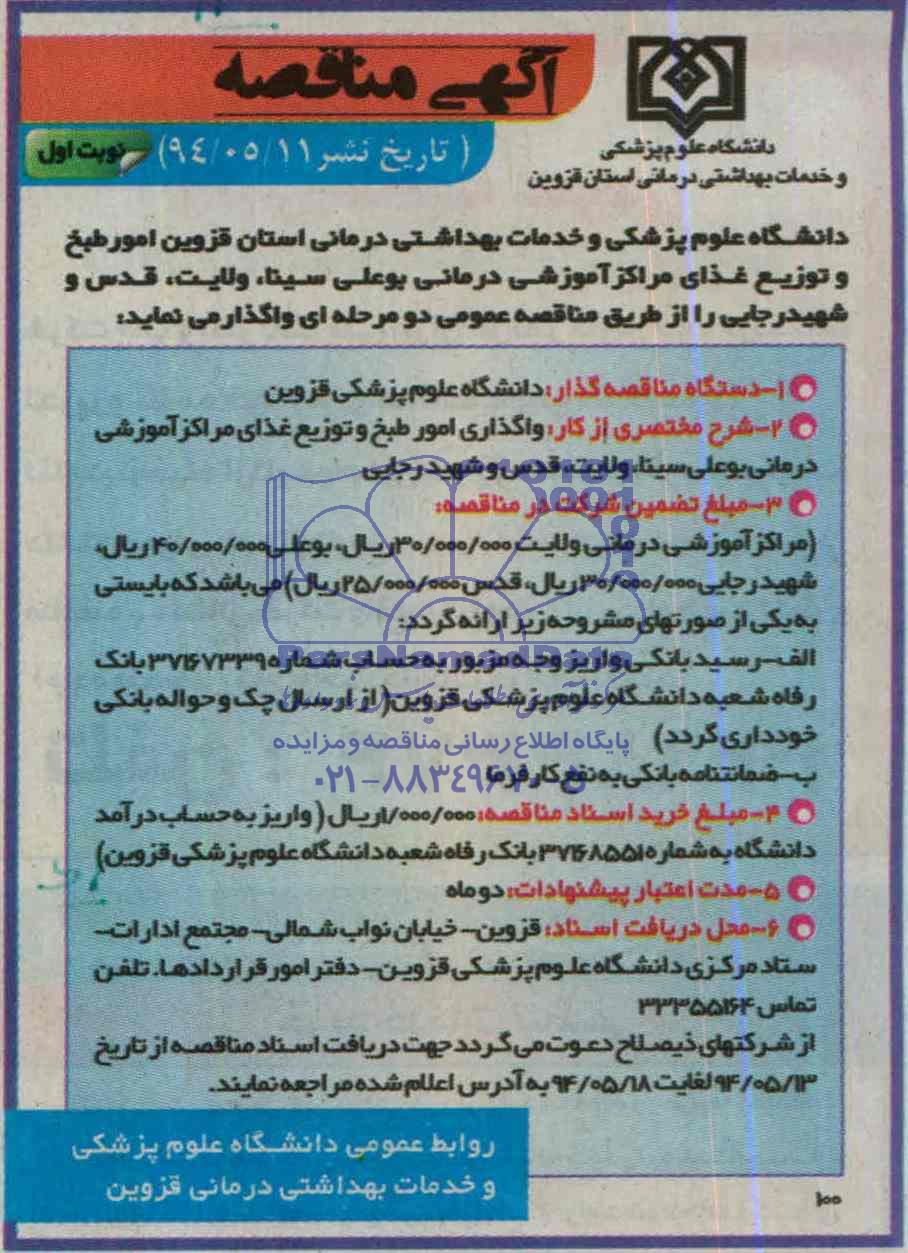 آگهی مناقصه
(تاریخ نشر ۹٤/۰٥/۱۱)
نوبت اول
دانشگاه علوم پزشکی
و خدمات بهداشتی درمانی استان قزوین
دانشگاه علوم پزشکی و خدمات بهداشتی درمانی استان قزوین امور طبخ
و توزیع غذای مراکز آموزشی درمانی بوعلی سینا، ولایت، قدس و
شهیدرجایی را از طریق مناقصه عمومی دو مرحله ای واگذار می نماید:
۱-دستگاه مناقصه گذار: دانشگاه علوم پزشکی قزوین
۲-شرح مختصری از کار: واگذاری امور طبخ و توزیع غذای مراکز آموزشی
درمانی بوعلی سینا، ولایت، قدس و شهید رجایی
۳-مبلغ تضمین شرکت در مناقصه:
(مراکز آموزشی درمانی ولایت ۳۰/۰۰۰/۰۰۰ریال، بوعلی۴۰/۰۰۰/۰۰۰ ریال،
شهید رجایی۳۰/۰۰۰/۰۰۰ریال، قدس ۲۵/۰۰۰/۰۰۰ریال)می باشد که بایستی
به یکی از صورتهای مشروحه زیر ارائه گردد:
الف-رسید بانکی واریز وجه مزبور به حساب شماره ۳۷۱۶۷۳۳۹ بانک
رفاه شعبه دانشگاه علوم پزشکی قزوین( از ارسال چک و حواله بانکی
خودداری گردد)
ب-ضمانتنامه بانکی به نفع کارفرما
۴-مبلغ خرید اسناد مناقصه: ۱/۰۰۰/۰۰۰ریال( واریز به حساب درآمد
دانشگاه به شماره ۳۷۱۶۸۵۵۱ بانک رفاه شعبه دانشگاه علوم پزشکی قزوین)
۵-مدت اعتبار پیشنهادات: دو ماه
۶-محل دریافت اسناد: قزوین- خیابان نواب شمالی- مجتمع ادارات-
ستاد مرکزی دانشگاه علوم پزشکی قزوین- دفتر امور قراردادها. تلفن
تماس ۳۳۳۵۵۱۶۴
از شرکتهای ذیصلاح دعوت می گردد جهت دریافت اسناد مناقصه از تاریخ
۹۴/۰۵/۱۳ لغایت ۹۴/۰۵/۱۸ به آدرس اعلام شده مراجعه نمایند.
ParsNamadData
پایگاه اطلاع رسانی مناقصه و مزایده
۰۲۱-۸۸۳٤۹٦۷۰-٥
روابط عمومی دانشگاه علوم پزشکی
و خدمات بهداشتی درمانی قزوین
۱۰۰